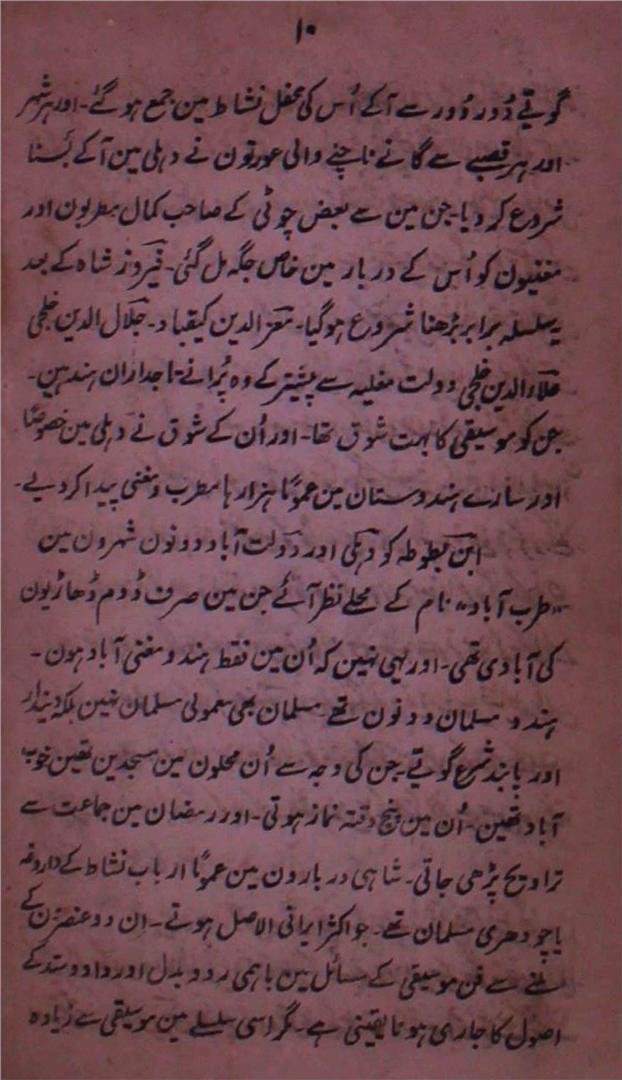 ۱۰
گویّے دُور دُور سے آکے اُس کی محفل نشاط مین جمع ہوگئے۔ اور ہر شہر
اور ہر قصبے سے گانے ناچنے والی عورتون نے دہلی مین آکے بَسنا
شروع کر دیا۔ جن مین سے بعض چوٹی کے صاحب کمال مطربون اور
مغنیون کو اُس کے دربار مین خاص جگہ مل گئی۔ فیروز شاہ کے بعد
یہ سلسلہ برابر بڑھنا شروع ہوگیا۔ معز الدین کیقباد۔ جلال الدین خلجی
علاء الدین خلجی دولت مغلیہ سے پیشتر کے وہ پُرانے تاجداران ہند ہین۔
جن کو موسیقی کا بہت شوق تھا۔ اور اُن کے شوق نے دہلی مین خصوصًا
اور سارے ہندوستان مین عمومًا ہزارہا مطرب و مغنی پیدا کر دیے۔
ابن بطوطہ کو دہلی اور دولت آباد دونون شہرون مین
”طرب آباد“ نام کے محلے نظر آئے جن مین صرف ڈوم ڈھاڑیون
کی آبادی تھی۔ اور یہی نہین کہ اُن مین فقط ہندو مغنی آباد ہون۔
ہندو مسلمان دونون تھے۔ مسلمان بھی معمولی مسلمان نہین بلکہ دیندار
اور پابند شرع گویّے۔ جن کی وجہ سے اُن محلون مین مسجدین تھین خوب
آباد تھین۔ اُن مین پنج وقتہ نماز ہوتی۔ اور رمضان مین جماعت سے
تراویح پڑھی جاتی۔ شاہی دربارون مین عمومًا ارباب نشاط کے داروغہ
یا چودھری مسلمان تھے۔ جو اکثر ایرانی الاصل ہوتے۔ ان دو عنصرون کے
ملنے سے فن موسیقی کے مسائل مین باہمی رد و بدل اور داد و ستد کے
اصول کا جاری ہونا یقینی ہے۔ مگر اسی سلسلے مین موسیقی سے زیادہ